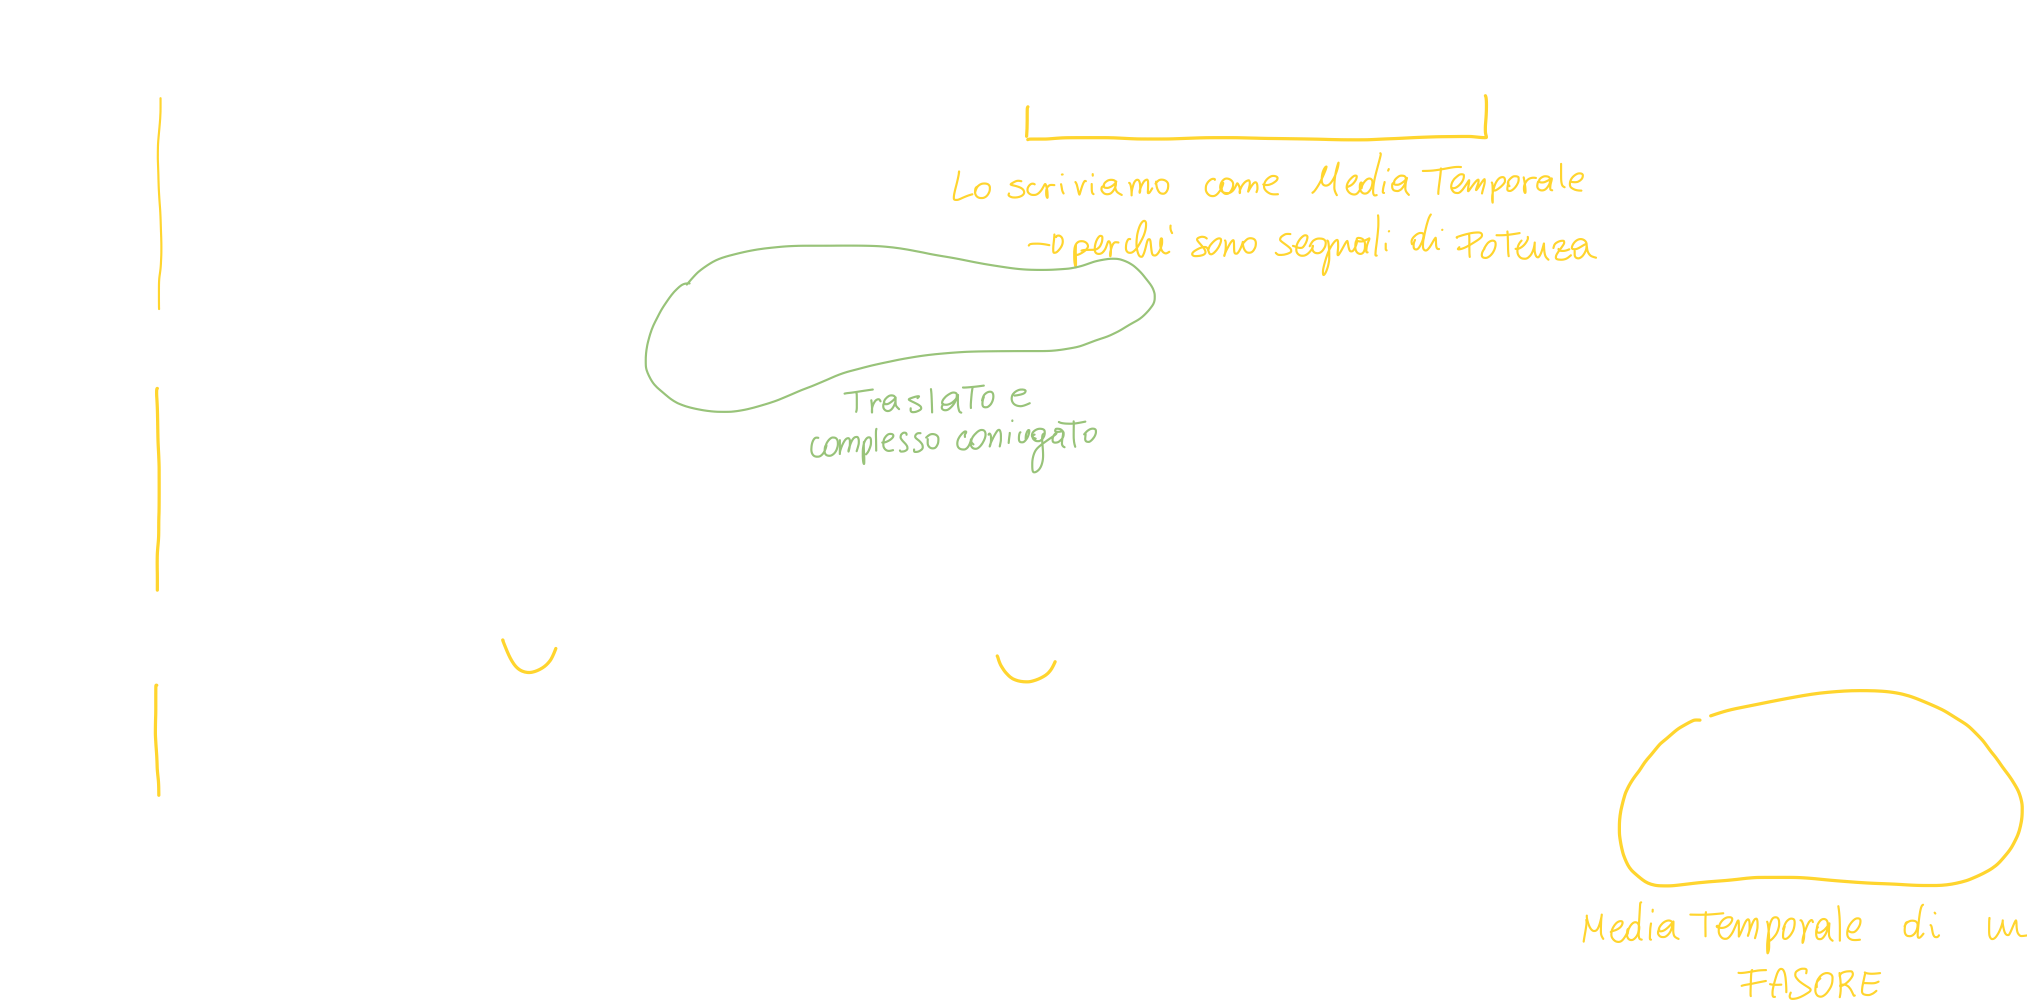 Lo scriviamo come Media Temporale
→ perchè sono segnali di Potenza
Traslato e
complesso coniugato
Media Temporale di un
FASORE